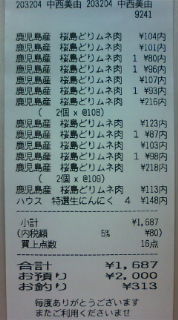 203204 中西美由 203204 中西美由
9241
鹿児島産 桜島どりムネ肉 ¥104内
鹿児島産 桜島どりムネ肉 ¥101内
鹿児島産 桜島どりムネ肉 1 ¥80内
鹿児島産 桜島どりムネ肉 1 ¥96内
鹿児島産 桜島どりムネ肉 ¥107内
鹿児島産 桜島どりムネ肉 1 ¥93内
鹿児島産 桜島どりムネ肉 ¥216内
( 2個 x @108)
鹿児島産 桜島どりムネ肉 ¥123内
鹿児島産 桜島どりムネ肉 1 ¥87内
鹿児島産 桜島どりムネ肉 ¥103内
鹿児島産 桜島どりムネ肉 1 ¥98内
鹿児島産 桜島どりムネ肉 ¥218内
( 2個 x @109)
鹿児島産 桜島どりムネ肉 ¥113内
ハウス 特選生にんにく 4 ¥148内
小計 ¥1,687
(内税額 5% ¥80)
買上点数 16点
合計 ¥1,687
お預り ¥2,000
お釣り ¥313
毎度ありがとうございます
またご利用くださいませ